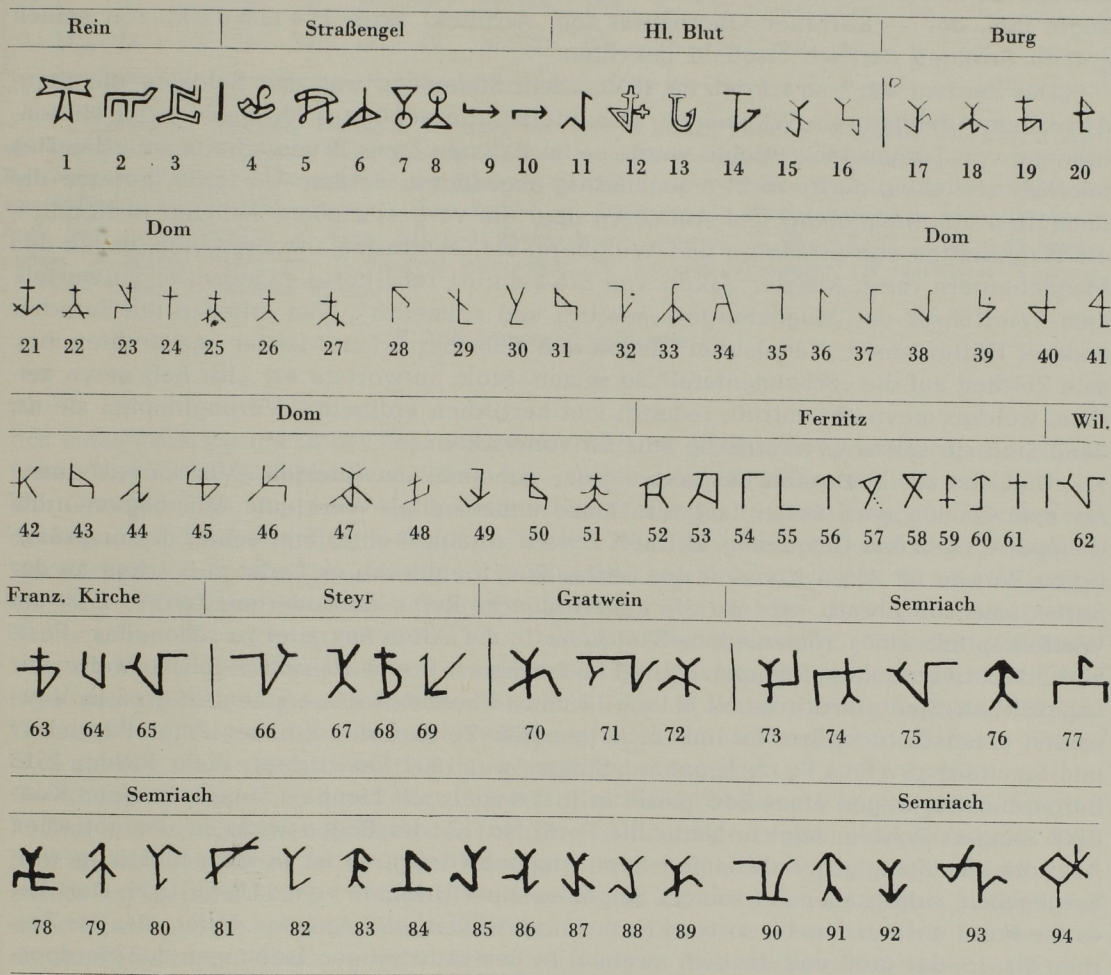 Rein Straßengel Hl. Blut Burg
1 2 3 4 5 6 7 8 9 10 11 12 13 14 15 16 17 18 19 20
Dom Dom
21 22 23 24 25 26 27 28 29 30 31 32 33 34 35 36 37 38 39 40 41
Dom Fernitz Wil.
42 43 44 45 46 47 48 49 50 51 52 53 54 55 56 57 58 59 60 61 62
Franz. Kirche Steyr Gratwein Semriach
63 64 65 66 67 68 69 70 71 72 73 74 75 76 77
Semriach Semriach
78 79 80 81 82 83 84 85 86 87 88 89 90 91 92 93 94